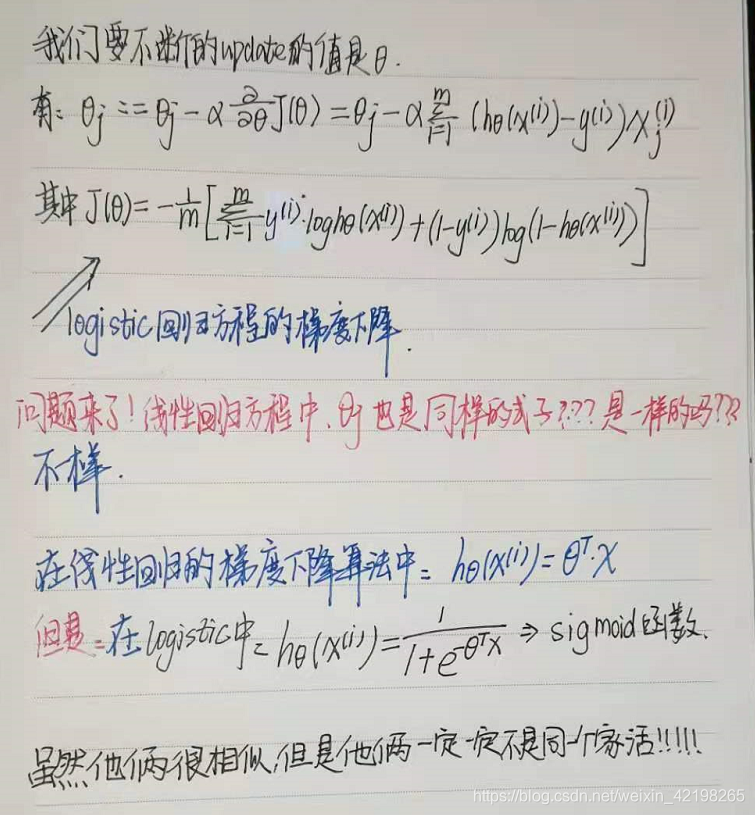 我们要不断的update的值是θ.
有: θj := θj - α ∂/∂θ J(θ) = θj - α Σ_{i=1}^{m} (hθ(x^(i)) - y^(i)) x_j^(i)
其中 J(θ) = -1/m [Σ_{i=1}^{m} y^(i)·log hθ(x^(i)) + (1-y^(i)) log(1-hθ(x^(i)))]
logistic回归方程的梯度下降.
问题来了!线性回归方程中、θj也是同样的式子???是一样的吗???
不样.
在线性回归的梯度下降算法中: hθ(x^(i)) = θ^T·x
但是:在logistic中: hθ(x^(i)) = 1/(1+e^{-θ^T x}) ⇒ sigmoid函数.
虽然他俩很相似,但是他俩一定一定不是同一个家活!!!!!
https://blog.csdn.net/weixin_42198265